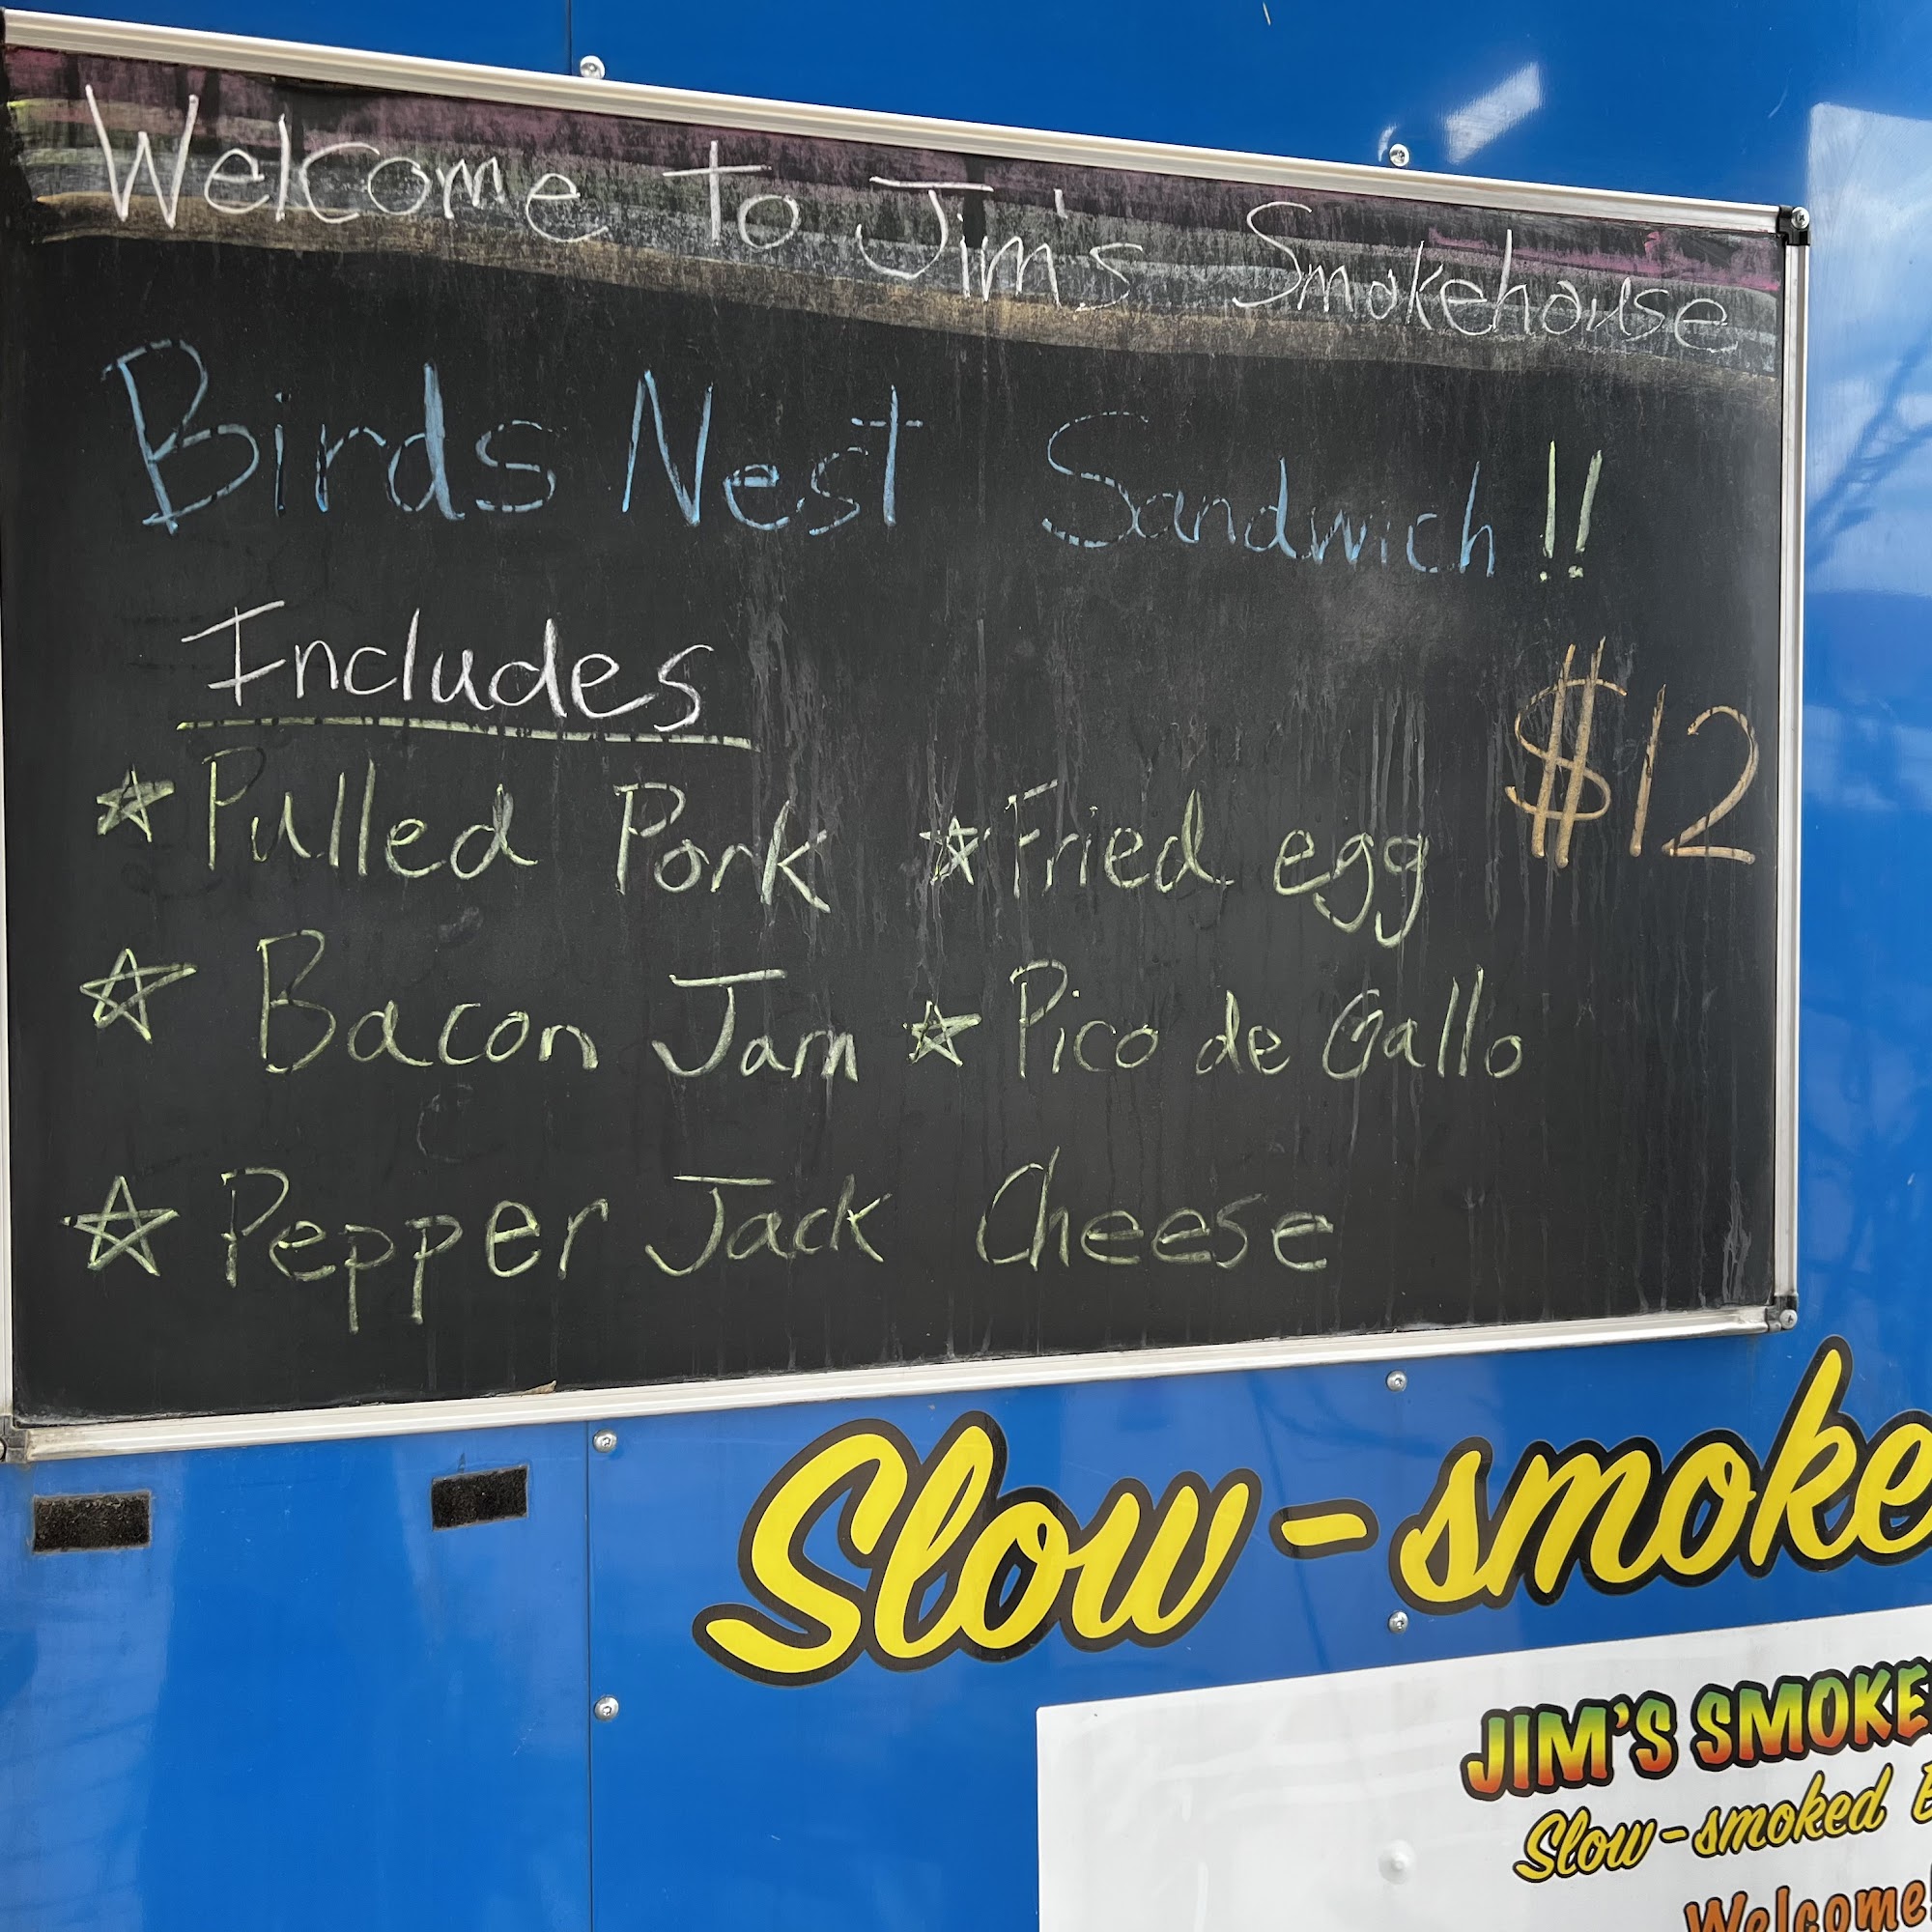 Welcome to Jim's Smokehouse
Birds Nest Sandwich!!
Includes
$12
☆ Pulled Pork ☆ Fried egg
☆ Bacon Jam ☆ Pico de Gallo
☆ Pepper Jack Cheese
Slow-smoke
JIM'S SMOKE
Slow-smoked
Welcome